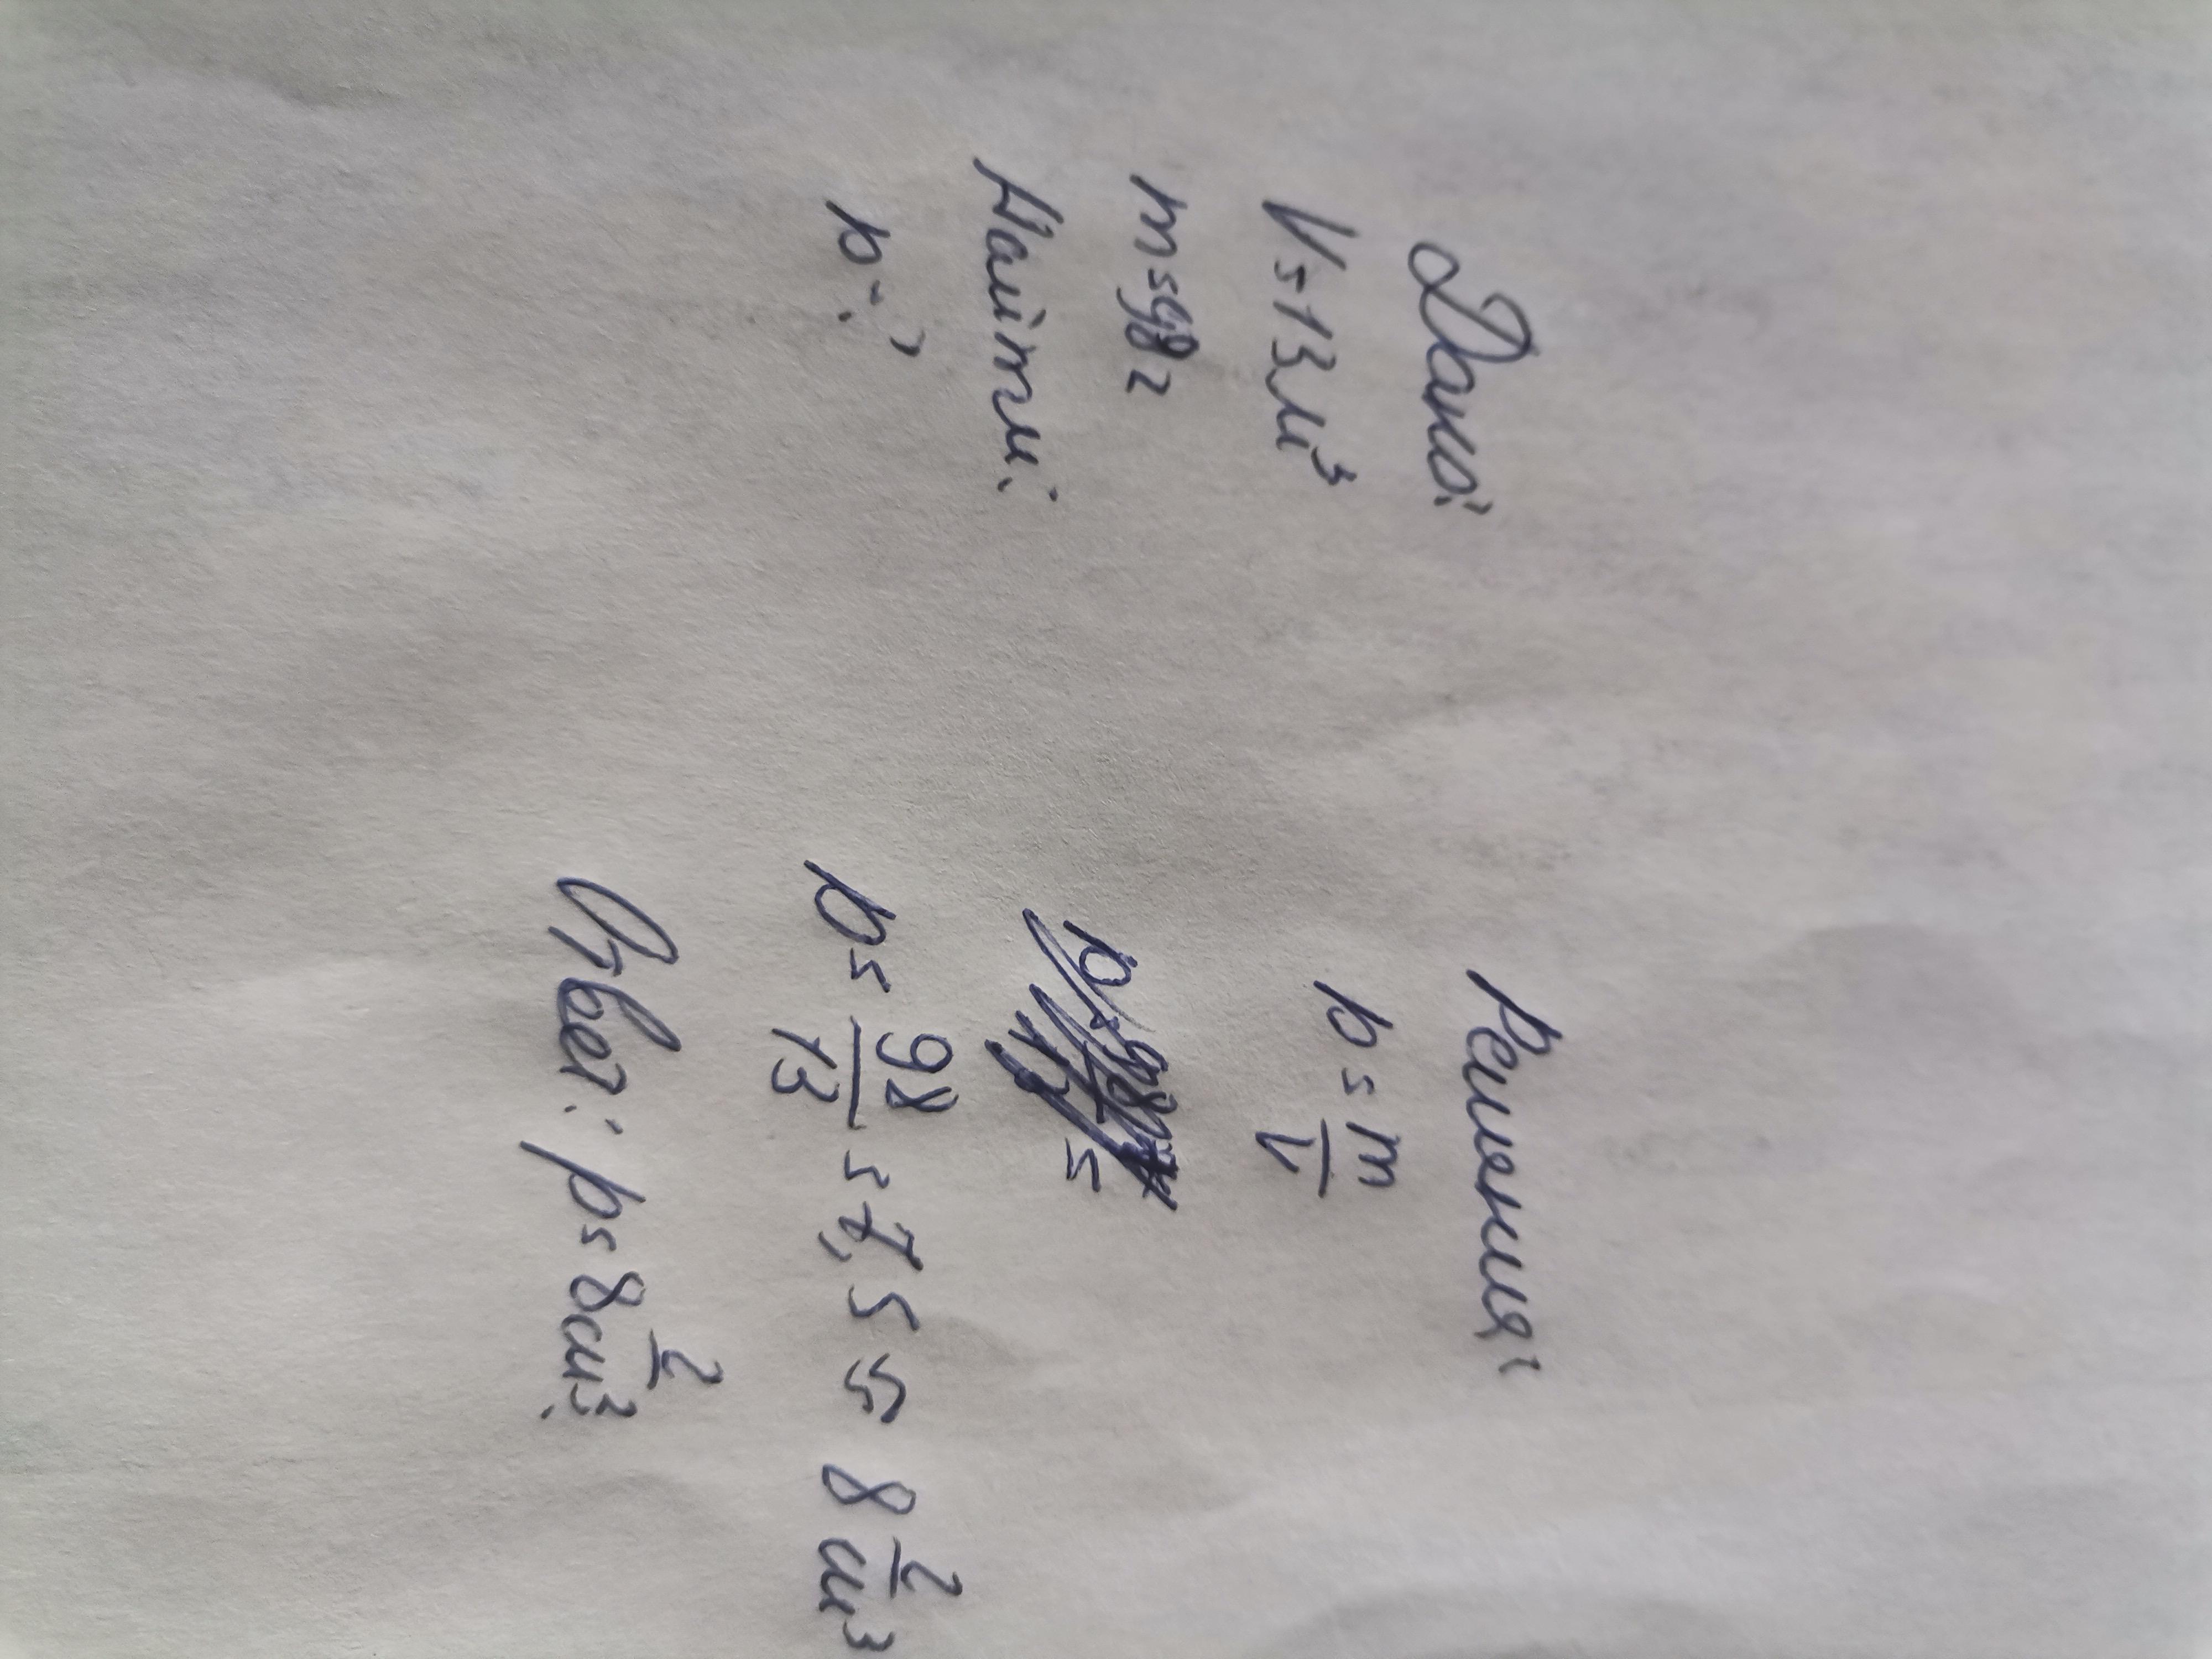 Дано:
V = 13 м³
m = 98 г
Найти:
p - ?
Решения:
p = m/V
p = 98/13 = 7,5 = 8 г/см³
Ответ: p = 8 г/см³.